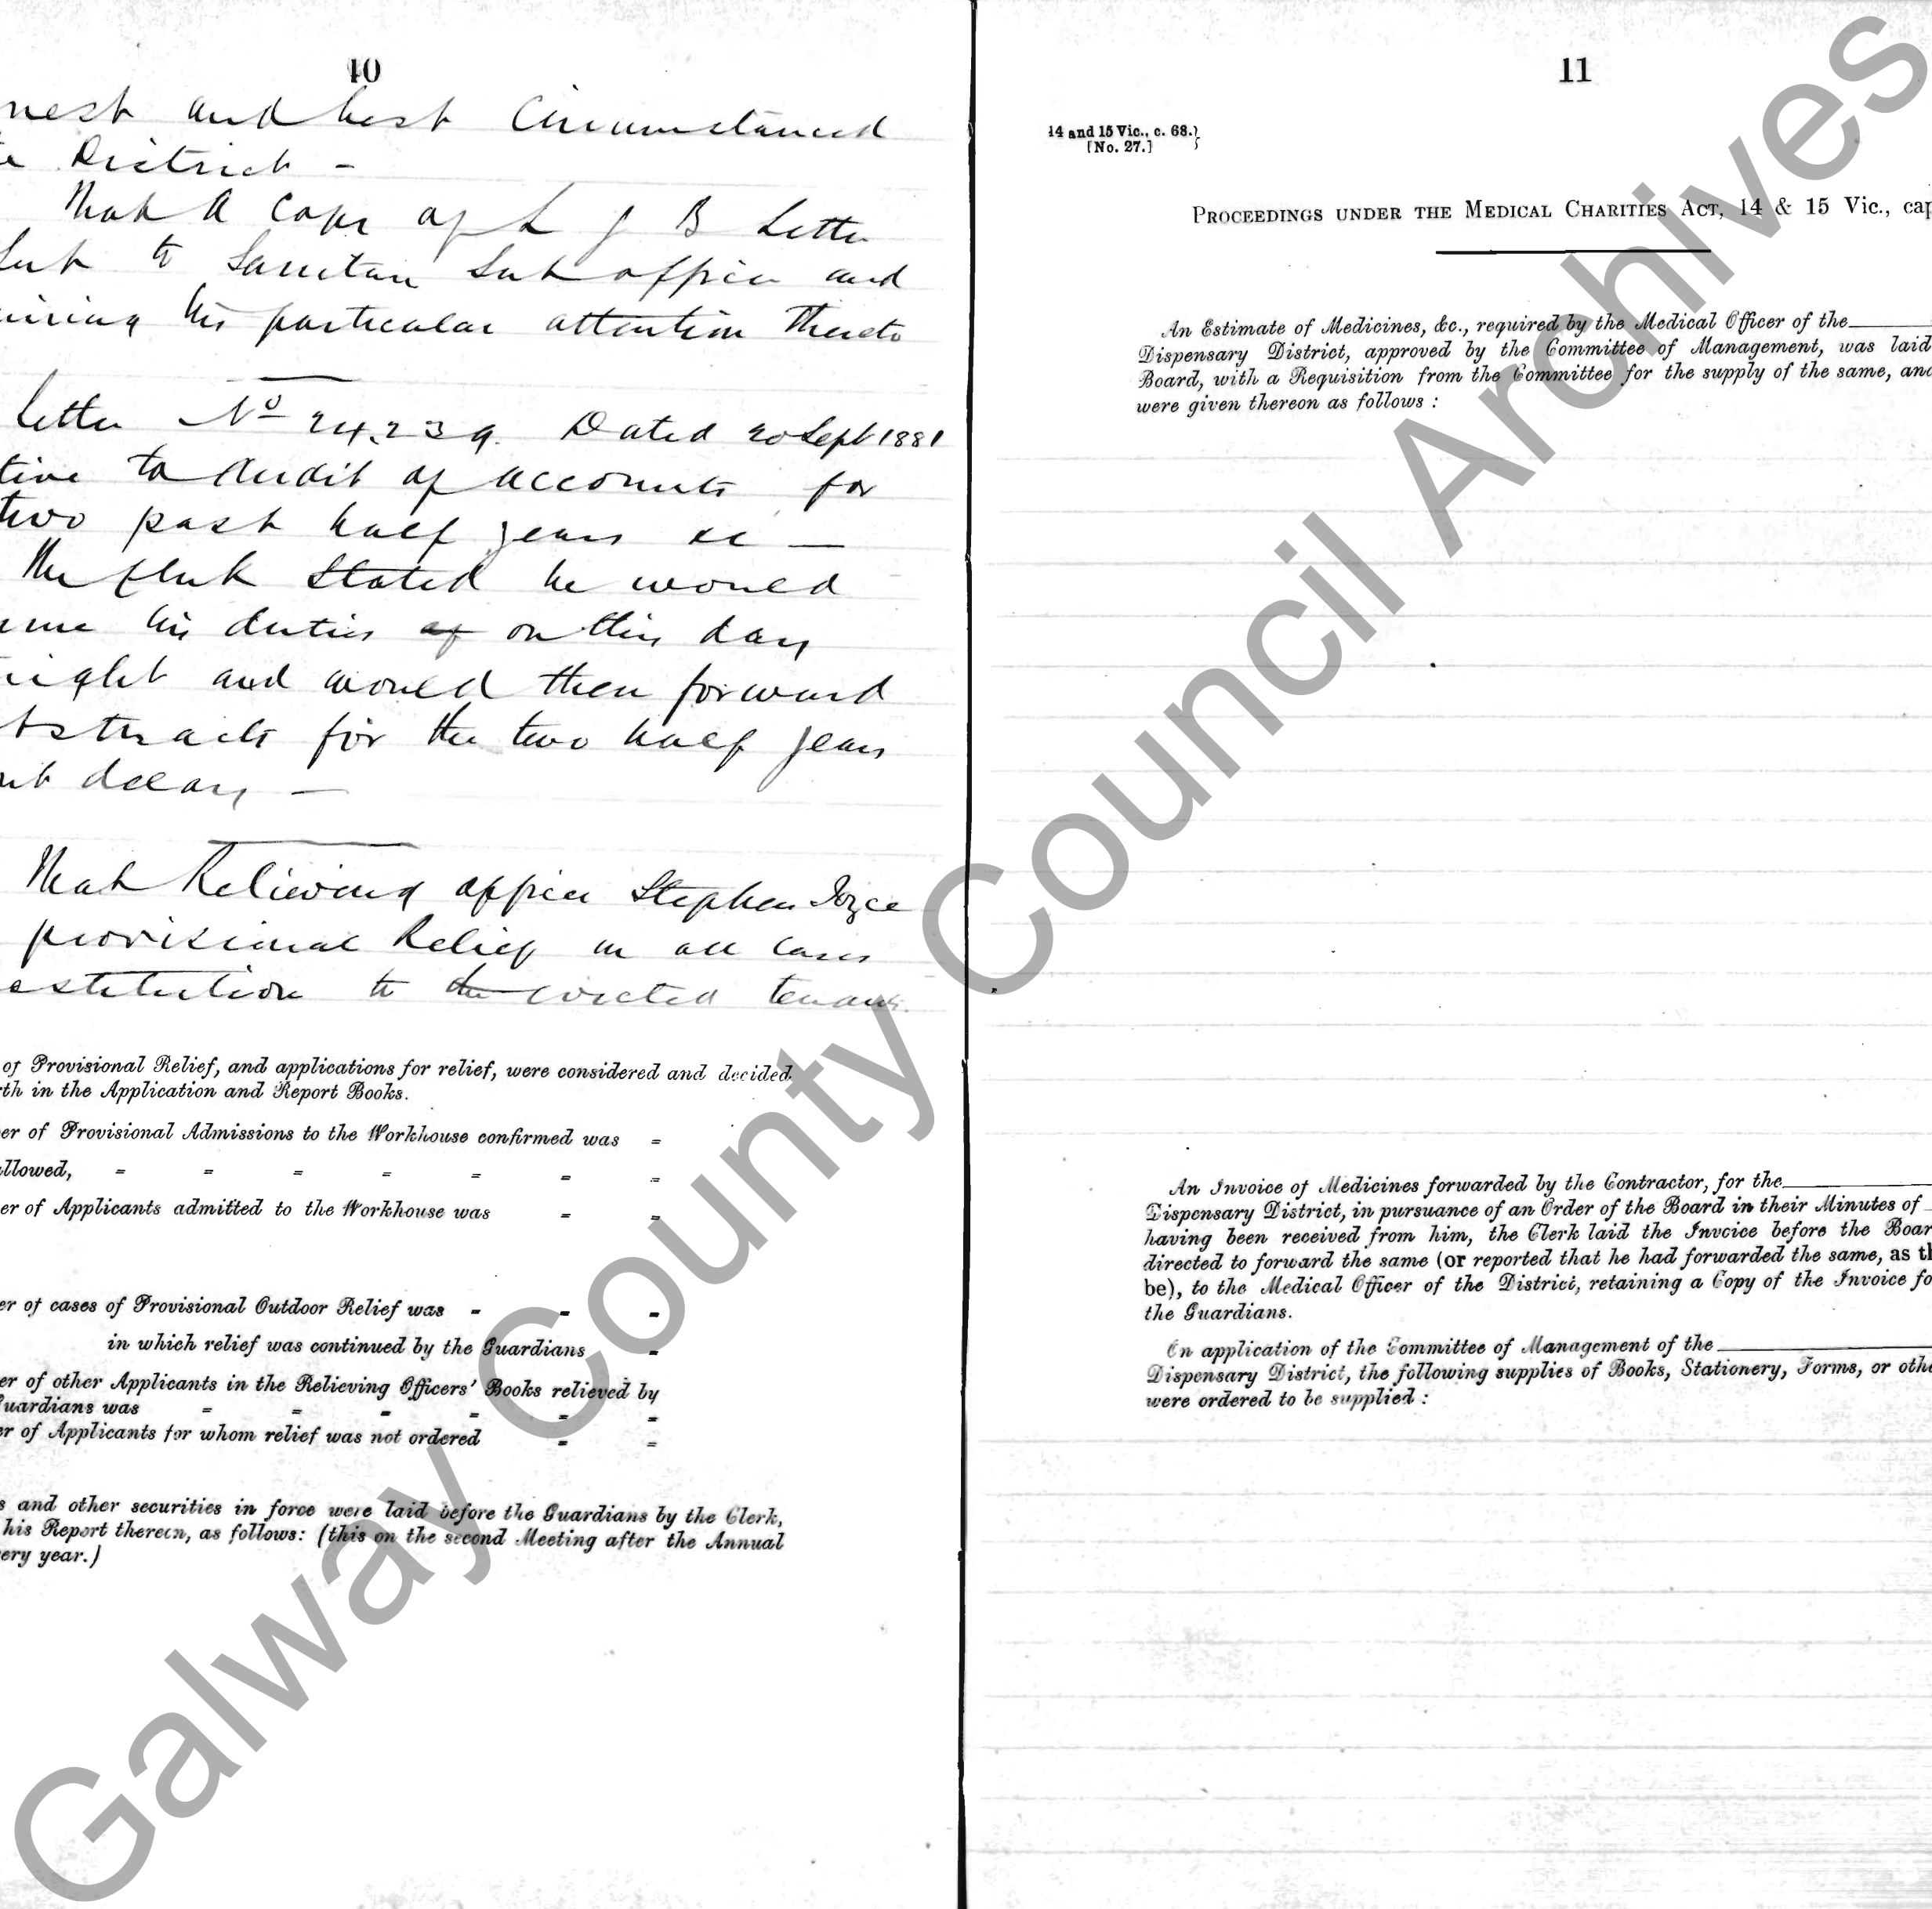 10
nest and best Circumstanced
District -
That A Copy of L G B Letter
Sent to Sanitary Sub officer and
his particular attention thereto
Letter No 24.239. Dated 20 Sept 1881
tive to Audit of accounts for
two past half years &c —
The Clerk Stated he would
ume his duties of on this day
night and would then forward
bstracts for the two half years
ut delay —
That Relieving officer Stephen Joyce
provisional Relief in all cases
estitution to the evicted tenants.
of Provisional Relief, and applications for relief, were considered and decided
rth in the Application and Report Books.
er of Provisional Admissions to the Workhouse confirmed was
allowed,
er of Applicants admitted to the Workhouse was
er of cases of Provisional Outdoor Relief was
in which relief was continued by the Guardians
er of other Applicants in the Relieving Officers' Books relieved by
Guardians was
er of Applicants for whom relief was not ordered
s and other securities in force were laid before the Guardians by the Clerk,
his Report thereon, as follows: (this on the second Meeting after the Annual
ery year.)
11
14 and 15 Vic., c. 68.}
[No. 27.]
PROCEEDINGS UNDER THE MEDICAL CHARITIES ACT, 14 & 15 Vic., cap
An Estimate of Medicines, &c., required by the Medical Officer of the
Dispensary District, approved by the Committee of Management, was laid
Board, with a Requisition from the Committee for the supply of the same, and
were given thereon as follows :
An Invoice of Medicines forwarded by the Contractor, for the
Dispensary District, in pursuance of an Order of the Board in their Minutes of
having been received from him, the Clerk laid the Invoice before the Boar
directed to forward the same (or reported that he had forwarded the same, as th
be), to the Medical Officer of the District, retaining a Copy of the Invoice fo
the Guardians.
On application of the Committee of Management of the
Dispensary District, the following supplies of Books, Stationery, Forms, or othe
were ordered to be supplied :
Galway County Council Archives